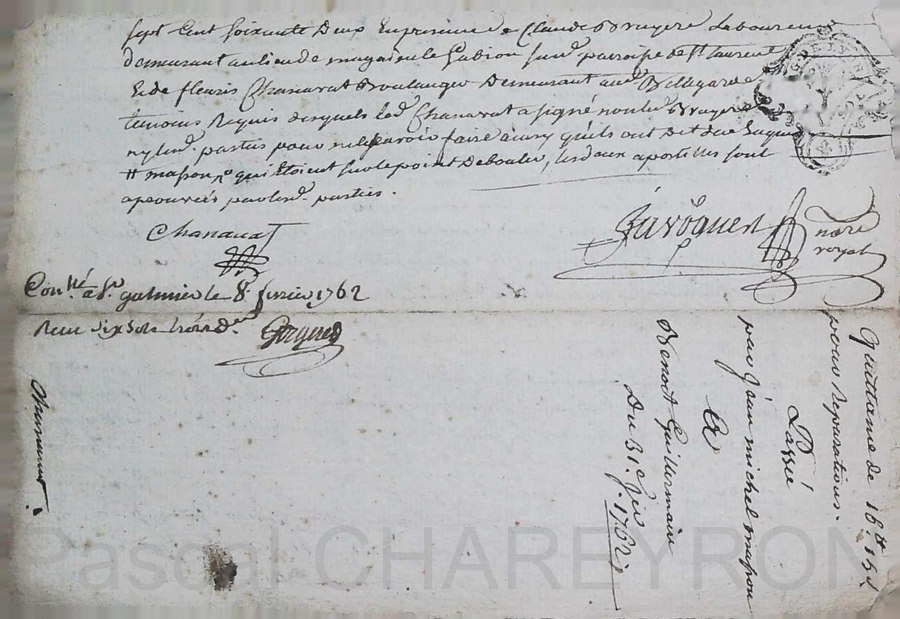 sept Cent soixante Deux En presence de Claude Bruyere Laboureur
demeurant au lieu de sur la parroisse de St laurent
Et de fleuris Chanavat Boulanger Demeurant aud Bellegarde
temoins Requis desquels led Chanavat a signé non led Bruyere
ny lesd. parties pour ne sçavoir faire ainsy quils ont dit de ce Enquis
# masson qui étoient sur le point de les deux apostilles sont
aprouvées par lesd. parties.
Chanavat
Javoguest nore
royal
Conllé a St. galmier le 8e. fevrier 1762
Reçu six Sols
Quittance de 16tt. 15s
pour reparations.
Passée
par Jean michel masson
A
Benoit Guillermain
Du 31e. Jer
1762
Pascal CHAREYRON